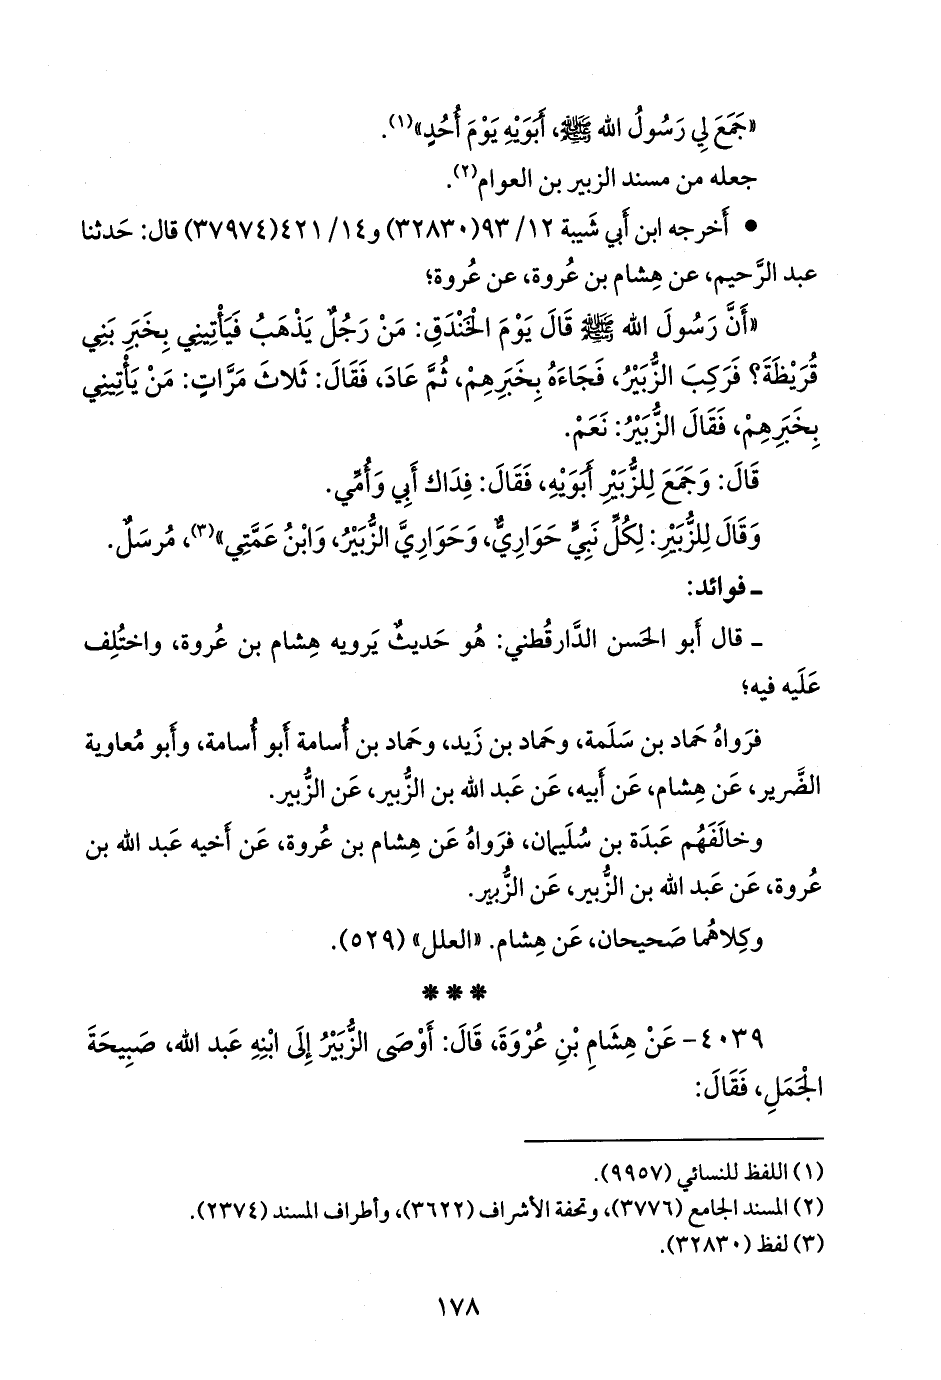 «جَمَعَ لِي رَسُولُ الله ﷺ، أَبَوَيْهِ يَوْمَ أُحُدٍ»(١).
جعله من مسند الزبير بن العوام(٢).
• أَخرجه ابن أَبي شَيبة ١٢/ ٩٣(٣٢٨٣٠) و١٤/ ٤٢١(٣٧٩٧٤) قال: حَدثنا
عبد الرَّحيم، عن هِشام بن عُروة، عن عُروة؛
«أَنَّ رَسُولَ الله ﷺ قَالَ يَوْمَ الْخَنْدَقِ: مَنْ رَجُلٌ يَذْهَبُ فَيَأْتِينِي بِخَبَرِ بَنِي
قُرَيْظَةَ؟ فَرَكِبَ الزُّبَيْرُ، فَجَاءَهُ بِخَبَرِهِمْ، ثُمَّ عَادَ، فَقَالَ: ثَلاثَ مَرَّاتٍ: مَنْ يَأْتِينِي
بِخَبَرِهِمْ، فَقَالَ الزُّبَيْرُ: نَعَمْ.
قَالَ: وَجَمَعَ لِلزُّبَيْرِ أَبَوَيْهِ، فَقَالَ: فِدَاك أَبِي وَأُمِّي.
وَقَالَ لِلزُّبَيْرِ: لِكُلِّ نَبِيٍّ حَوَارِيٌّ، وَحَوَارِيَّ الزُّبَيْرُ، وَابْنُ عَمَّتِي»(٣)، مُرسَلٌ.
ـ فوائد:
ـ قال أَبو الحَسن الدَّارقُطني: هُو حَديثٌ يَرويه هِشام بن عُروة، واختُلِف
عَلَيه فيه؛
فرَواهُ حَماد بن سَلَمة، وحَماد بن زَيد، وحَماد بن أُسامة أَبو أُسامة، وأَبو مُعاوية
الضَّرير، عَن هِشام، عَن أَبيه، عَن عَبد الله بن الزُّبير، عَن الزُّبير.
وخالَفَهُم عَبدَة بن سُلَيمان، فرَواهُ عَن هِشام بن عُروة، عَن أَخيه عَبد الله بن
عُروة، عَن عَبد الله بن الزُّبير، عَن الزُّبير.
وكِلاهُما صَحيحان، عَن هِشام. «العلل» (٥٢٩).
* * *
٤٠٣٩- عَنْ هِشَامِ بْنِ عُرْوَةَ، قَالَ: أَوْصَى الزُّبَيْرُ إِلَى ابْنِهِ عَبد الله، صَبِيحَةَ
الْجَمَلِ، فَقَالَ:
(١) اللفظ للنسائي (٩٩٥٧).
(٢) المسند الجامع (٣٧٧٦)، وتحفة الأشراف (٣٦٢٢)، وأطراف المسند (٢٣٧٤).
(٣) لفظ (٣٢٨٣٠).
١٧٨